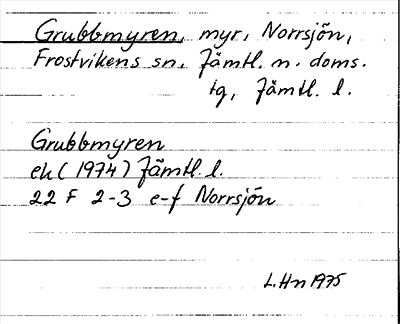 Grubbmyren, myr, Norrsjön,
Frostvikens sn, Jämtl. n. doms.
tg, Jämtl. l.
Grubbmyren
ek (1974) Jämtl. l.
22 F 2-3 e-f Norrsjön
L.Hn 1975